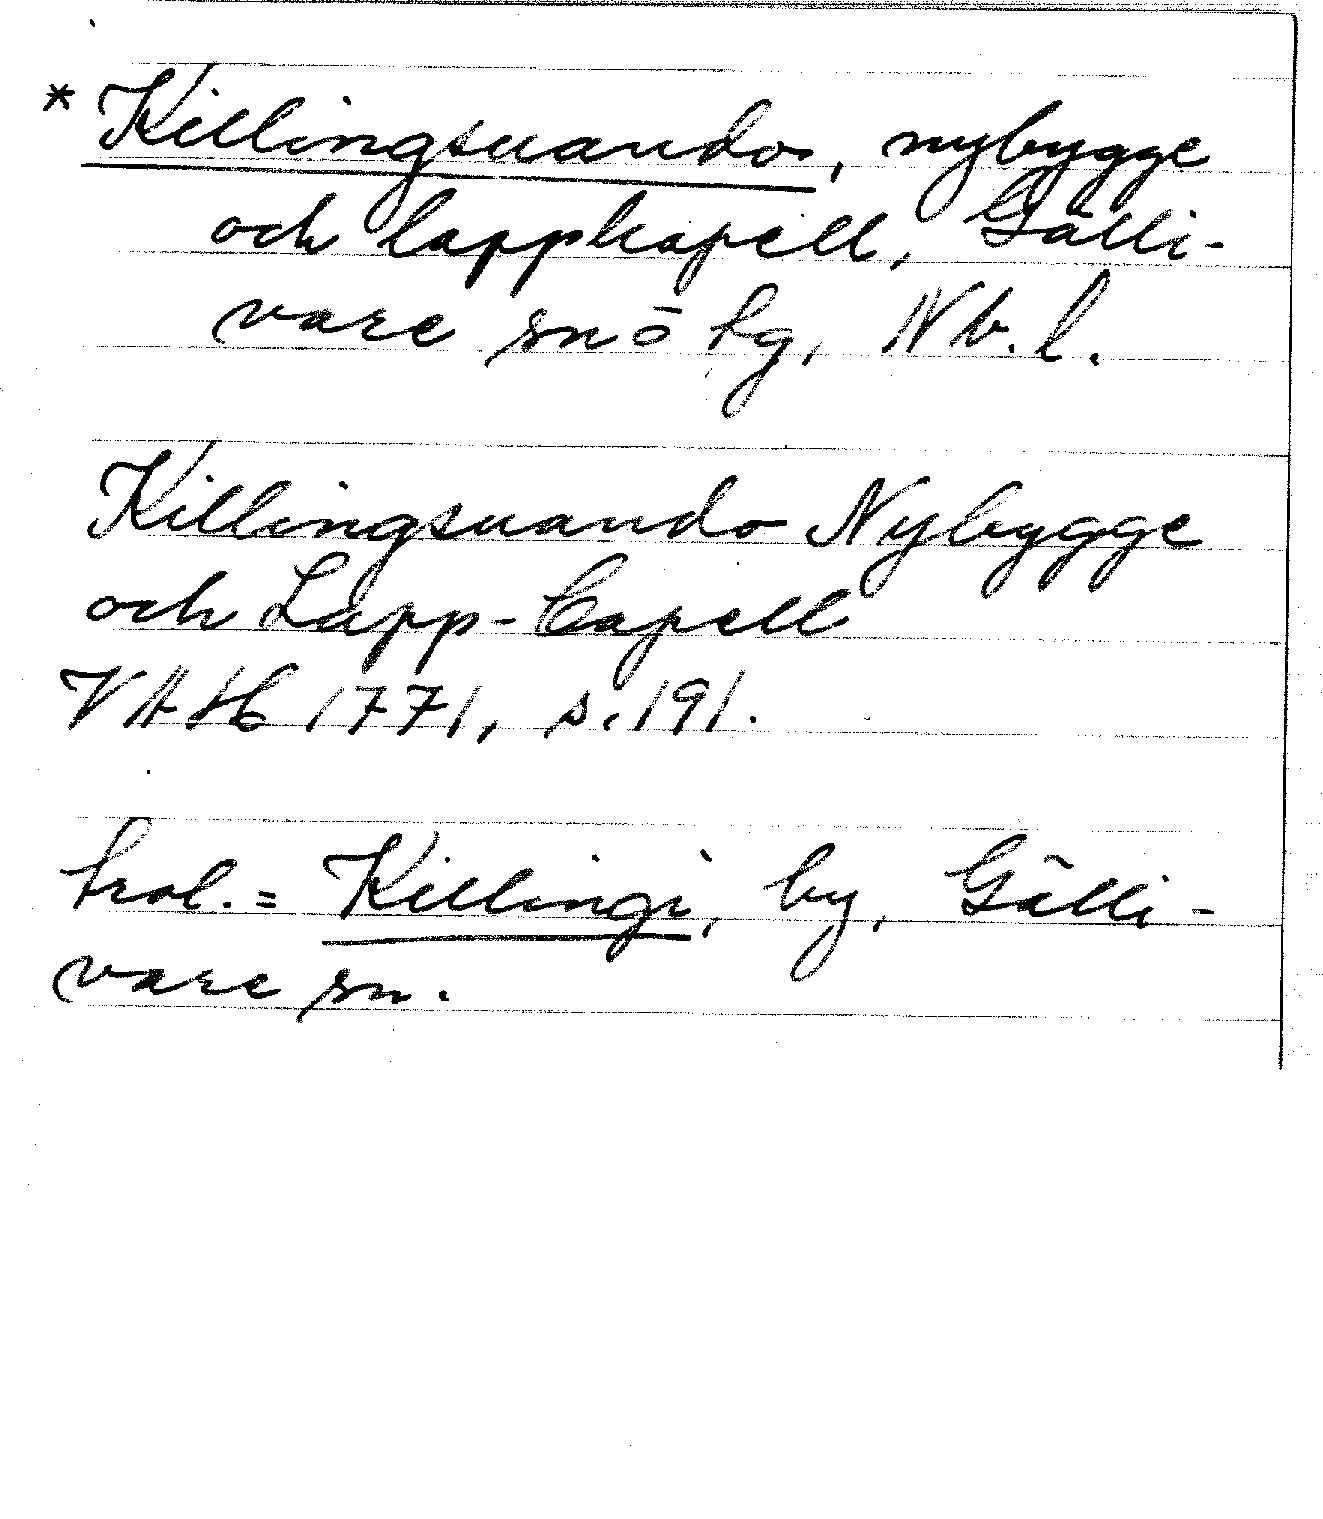 * Killingsuando, nybygge
och lappkapell, Gälli-
vare sn o tg, Nb. l.
Killingsuando Nybygge
och Lapp-Capell
VAH 1771, s. 191.
trol. = Killingi, by, Gälli-
vare sn.